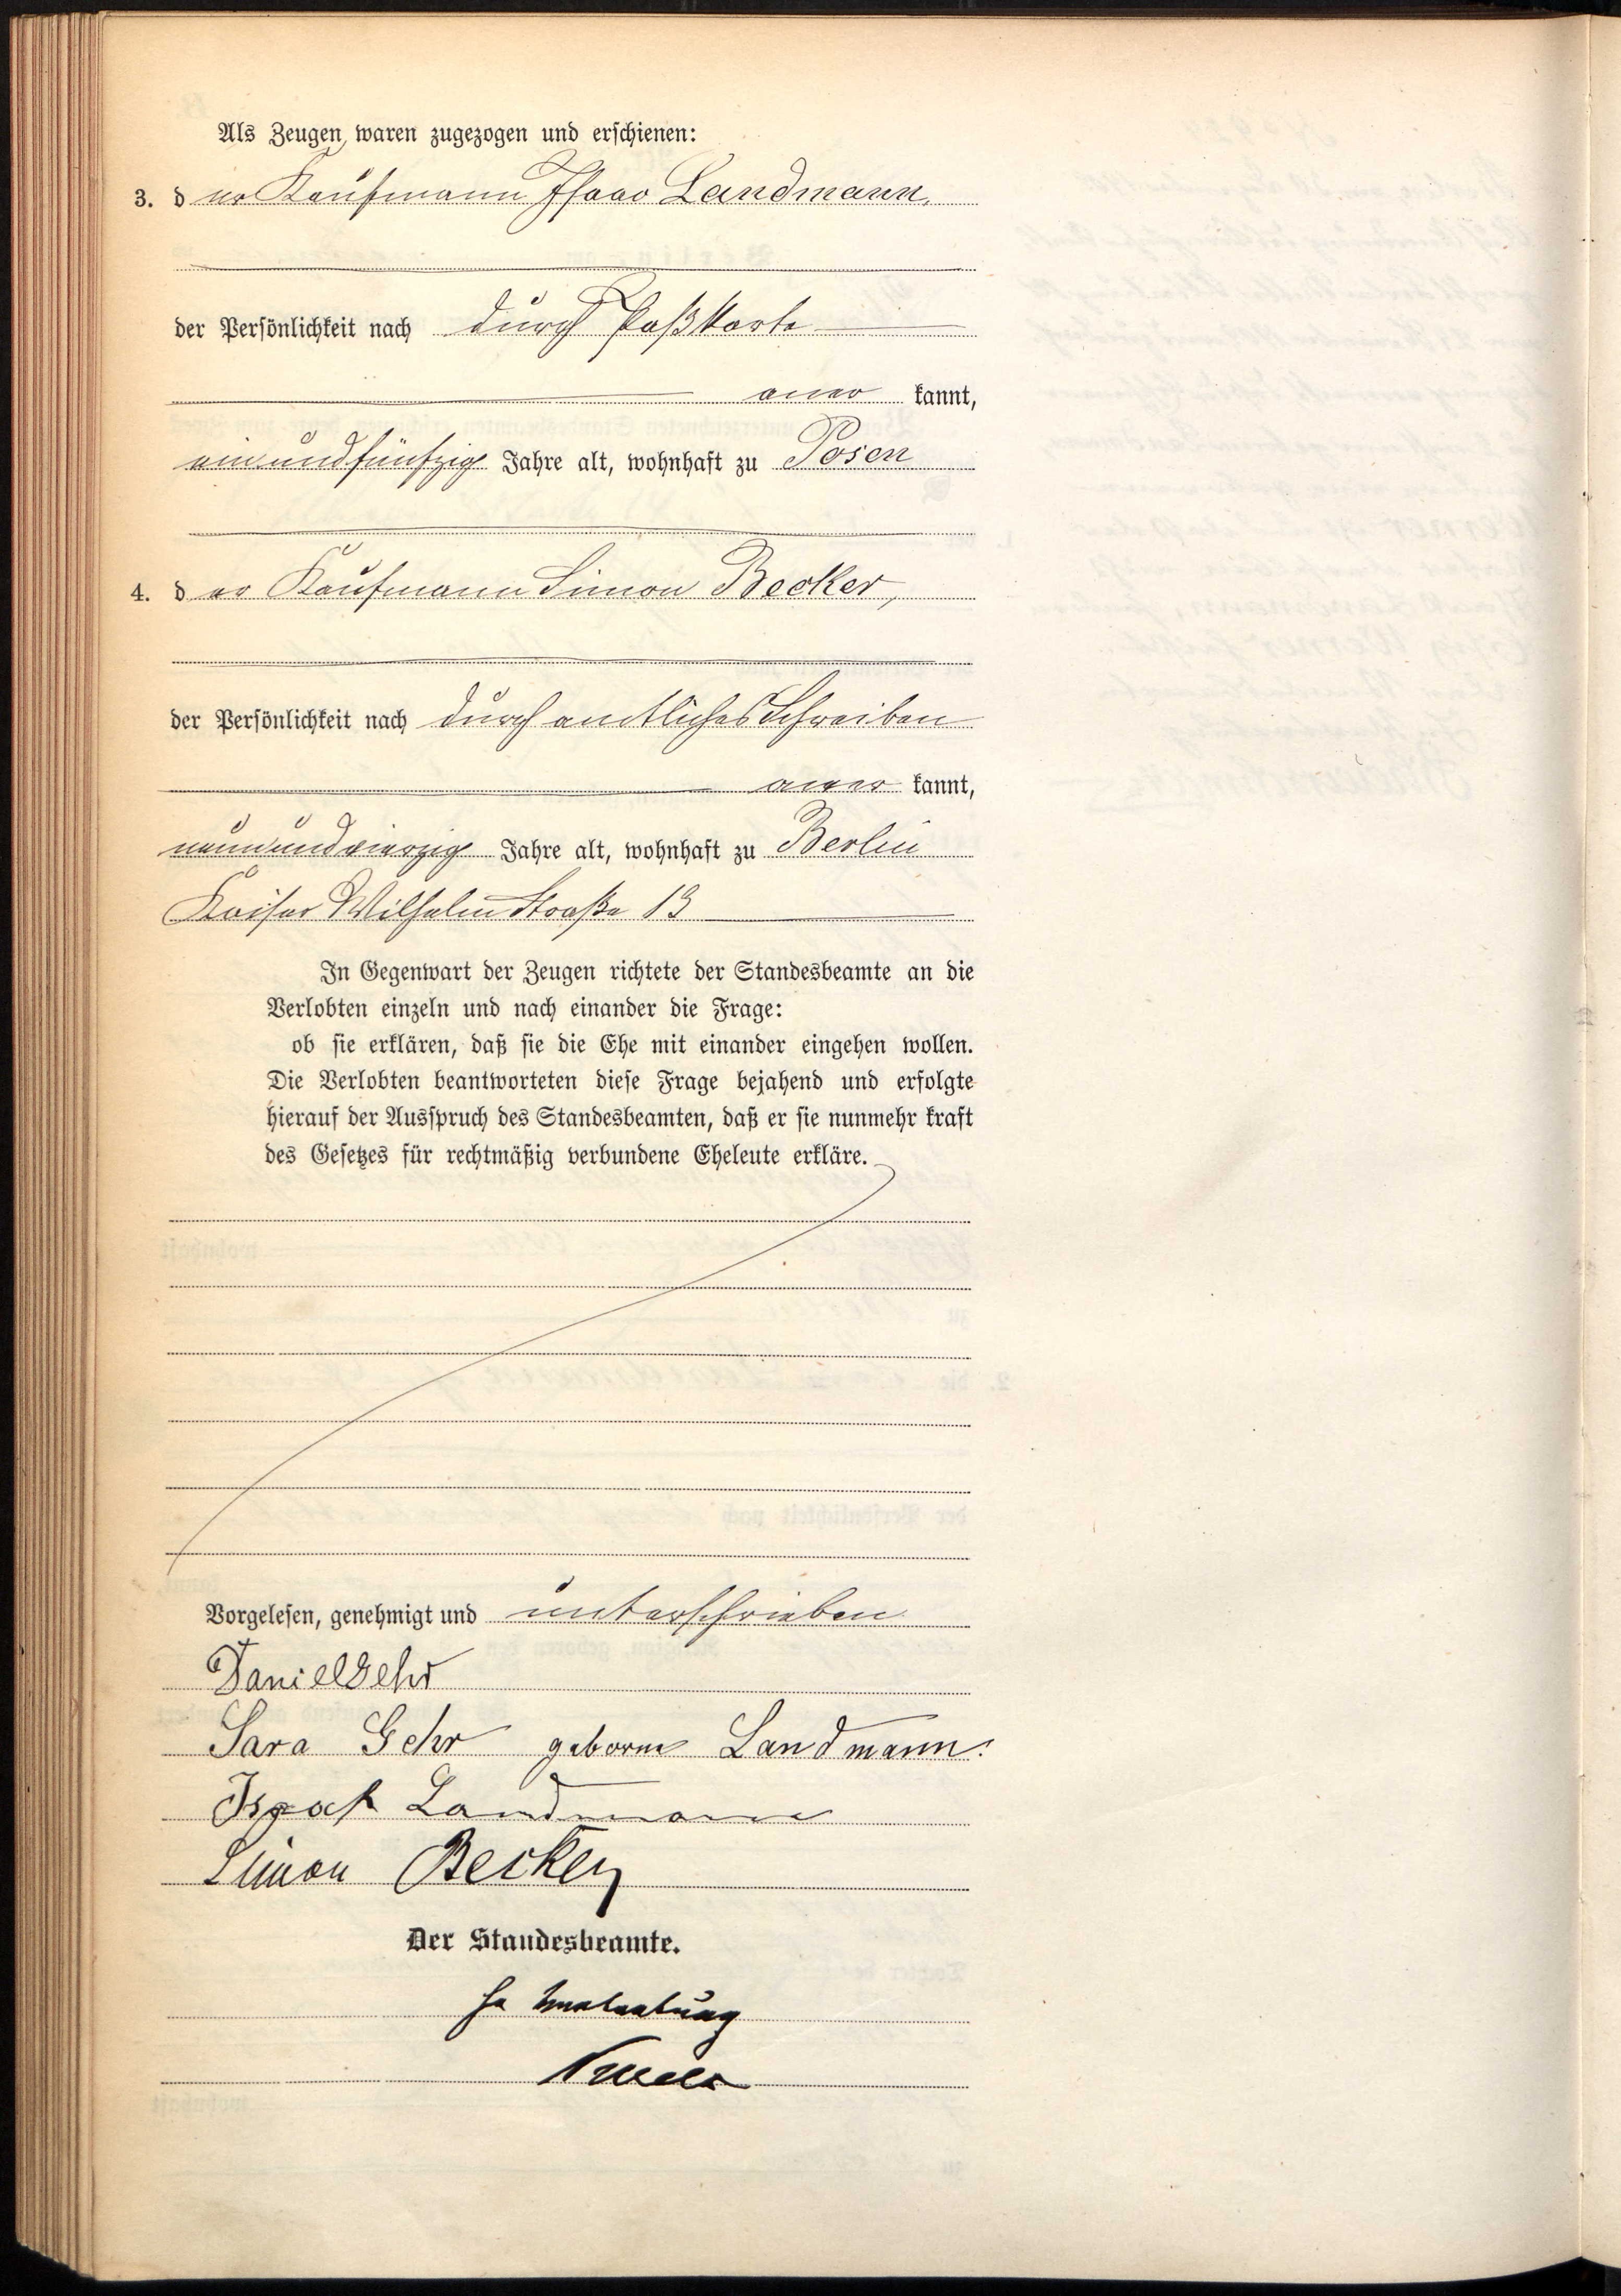 Als Zeugen waren zugezogen und erschienen:
3. der Kaufmann Isaac Landmann,
der Persönlichkeit nach durch Paßkarte
aner kannt,
einundfünfzig Jahre alt, wohnhaft zu Posen
4. der Kaufmann Simon Becker,
der Persönlichkeit nach durch amtliches Schreiben
aner kannt,
neunundvierzig Jahre alt, wohnhaft zu Berlin
Kaiser Wilhelm Straße 13
In Gegenwart der Zeugen richtete der Standesbeamte an die
Verlobten einzeln und nach einander die Frage:
ob sie erklären, daß sie die Ehe mit einander eingehen wollen.
Die Verlobten beantworteten diese Frage bejahend und erfolgte
hierauf der Ausspruch des Standesbeamten, daß er sie nunmehr kraft
des Gesetzes für rechtmäßig verbundene Eheleute erkläre.
Vorgelesen, genehmigt und unterschrieben
Daniel Gehr
Sara Gehr geborne Landmann.
Isaak Landmann
Simon Becker
Der Standesbeamte.
In Vertretung